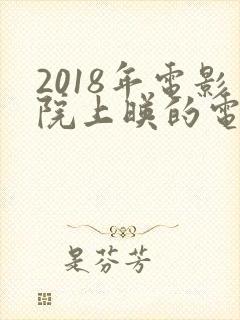 2018年電影
院上映的電
是芬芳